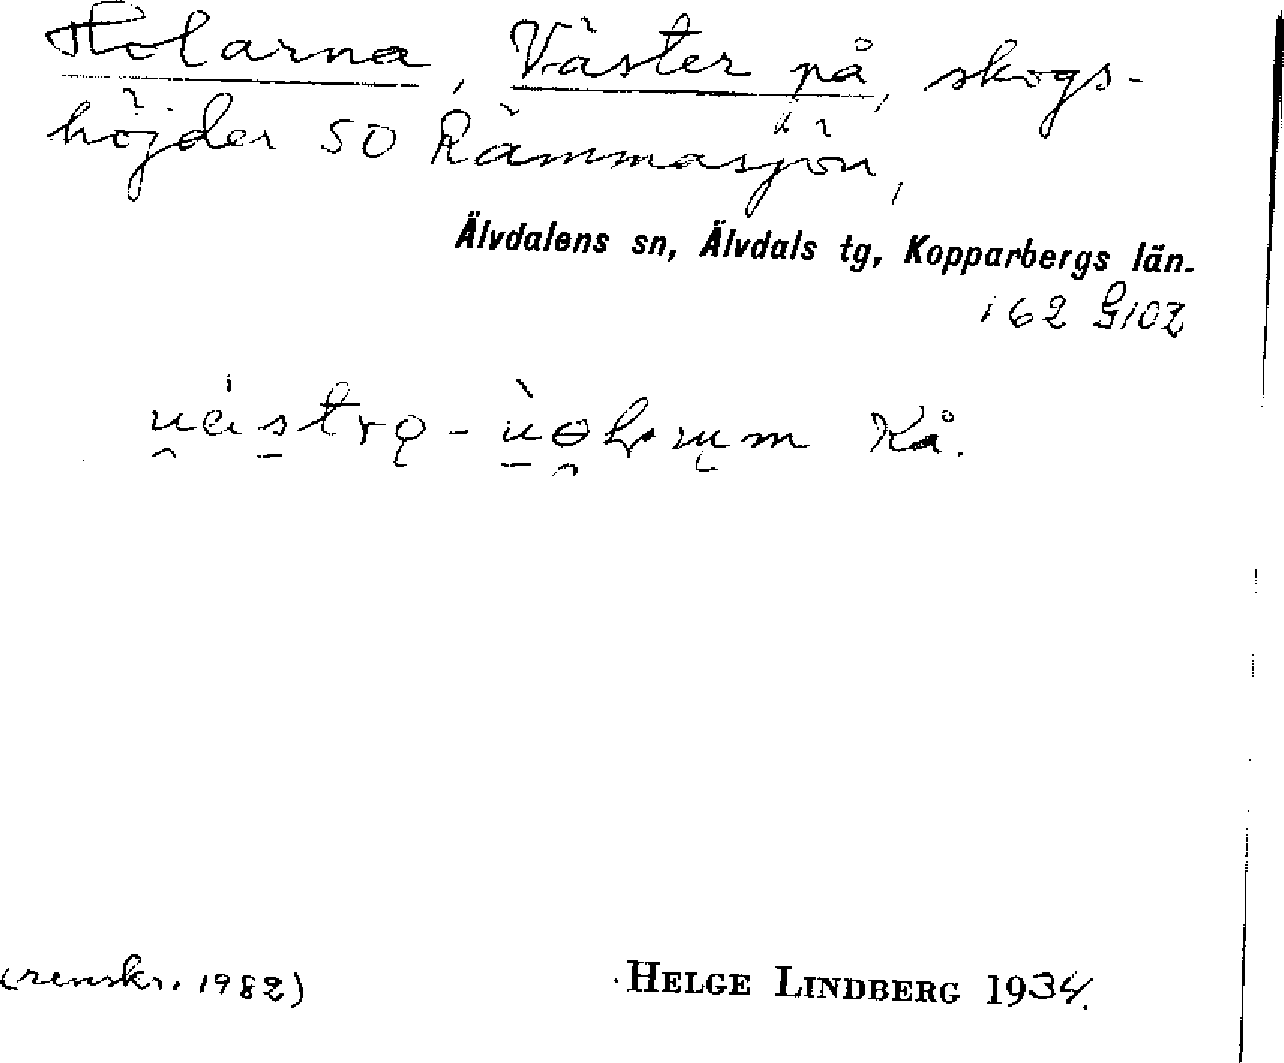 Hölarna, Väster på, skogs-
höjder SO Rämmasjön,
Älvdalens sn, Älvdals tg, Kopparbergs län.
162 G10Z
Kå.
(renskr. 1982)
HELGE LINDBERG 1934.